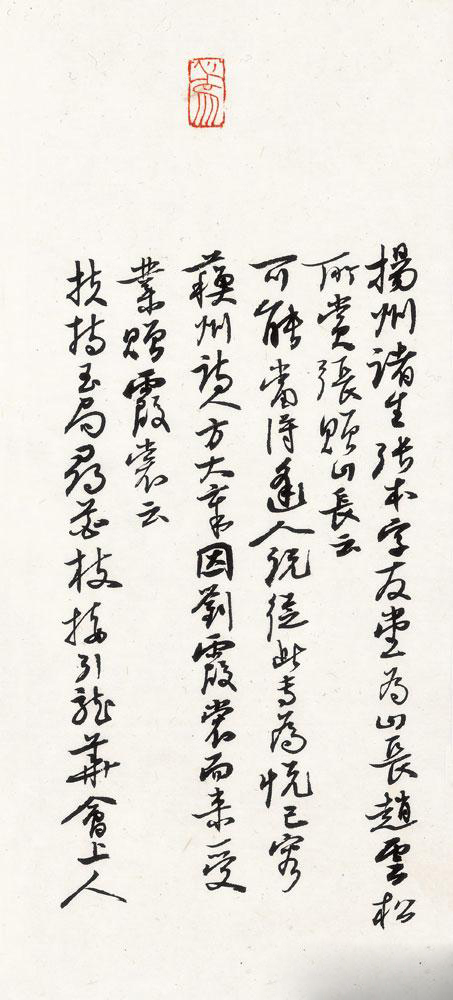 揚州諸生張本字友堂為山長趙雲松
所賞張贈山長云
可能當得逢人說從此專為悅己容
蘇州詩人方大章因劉霞裳而來受
業贈霞裳云
扶持玉局尋花枝接引龍華會上人